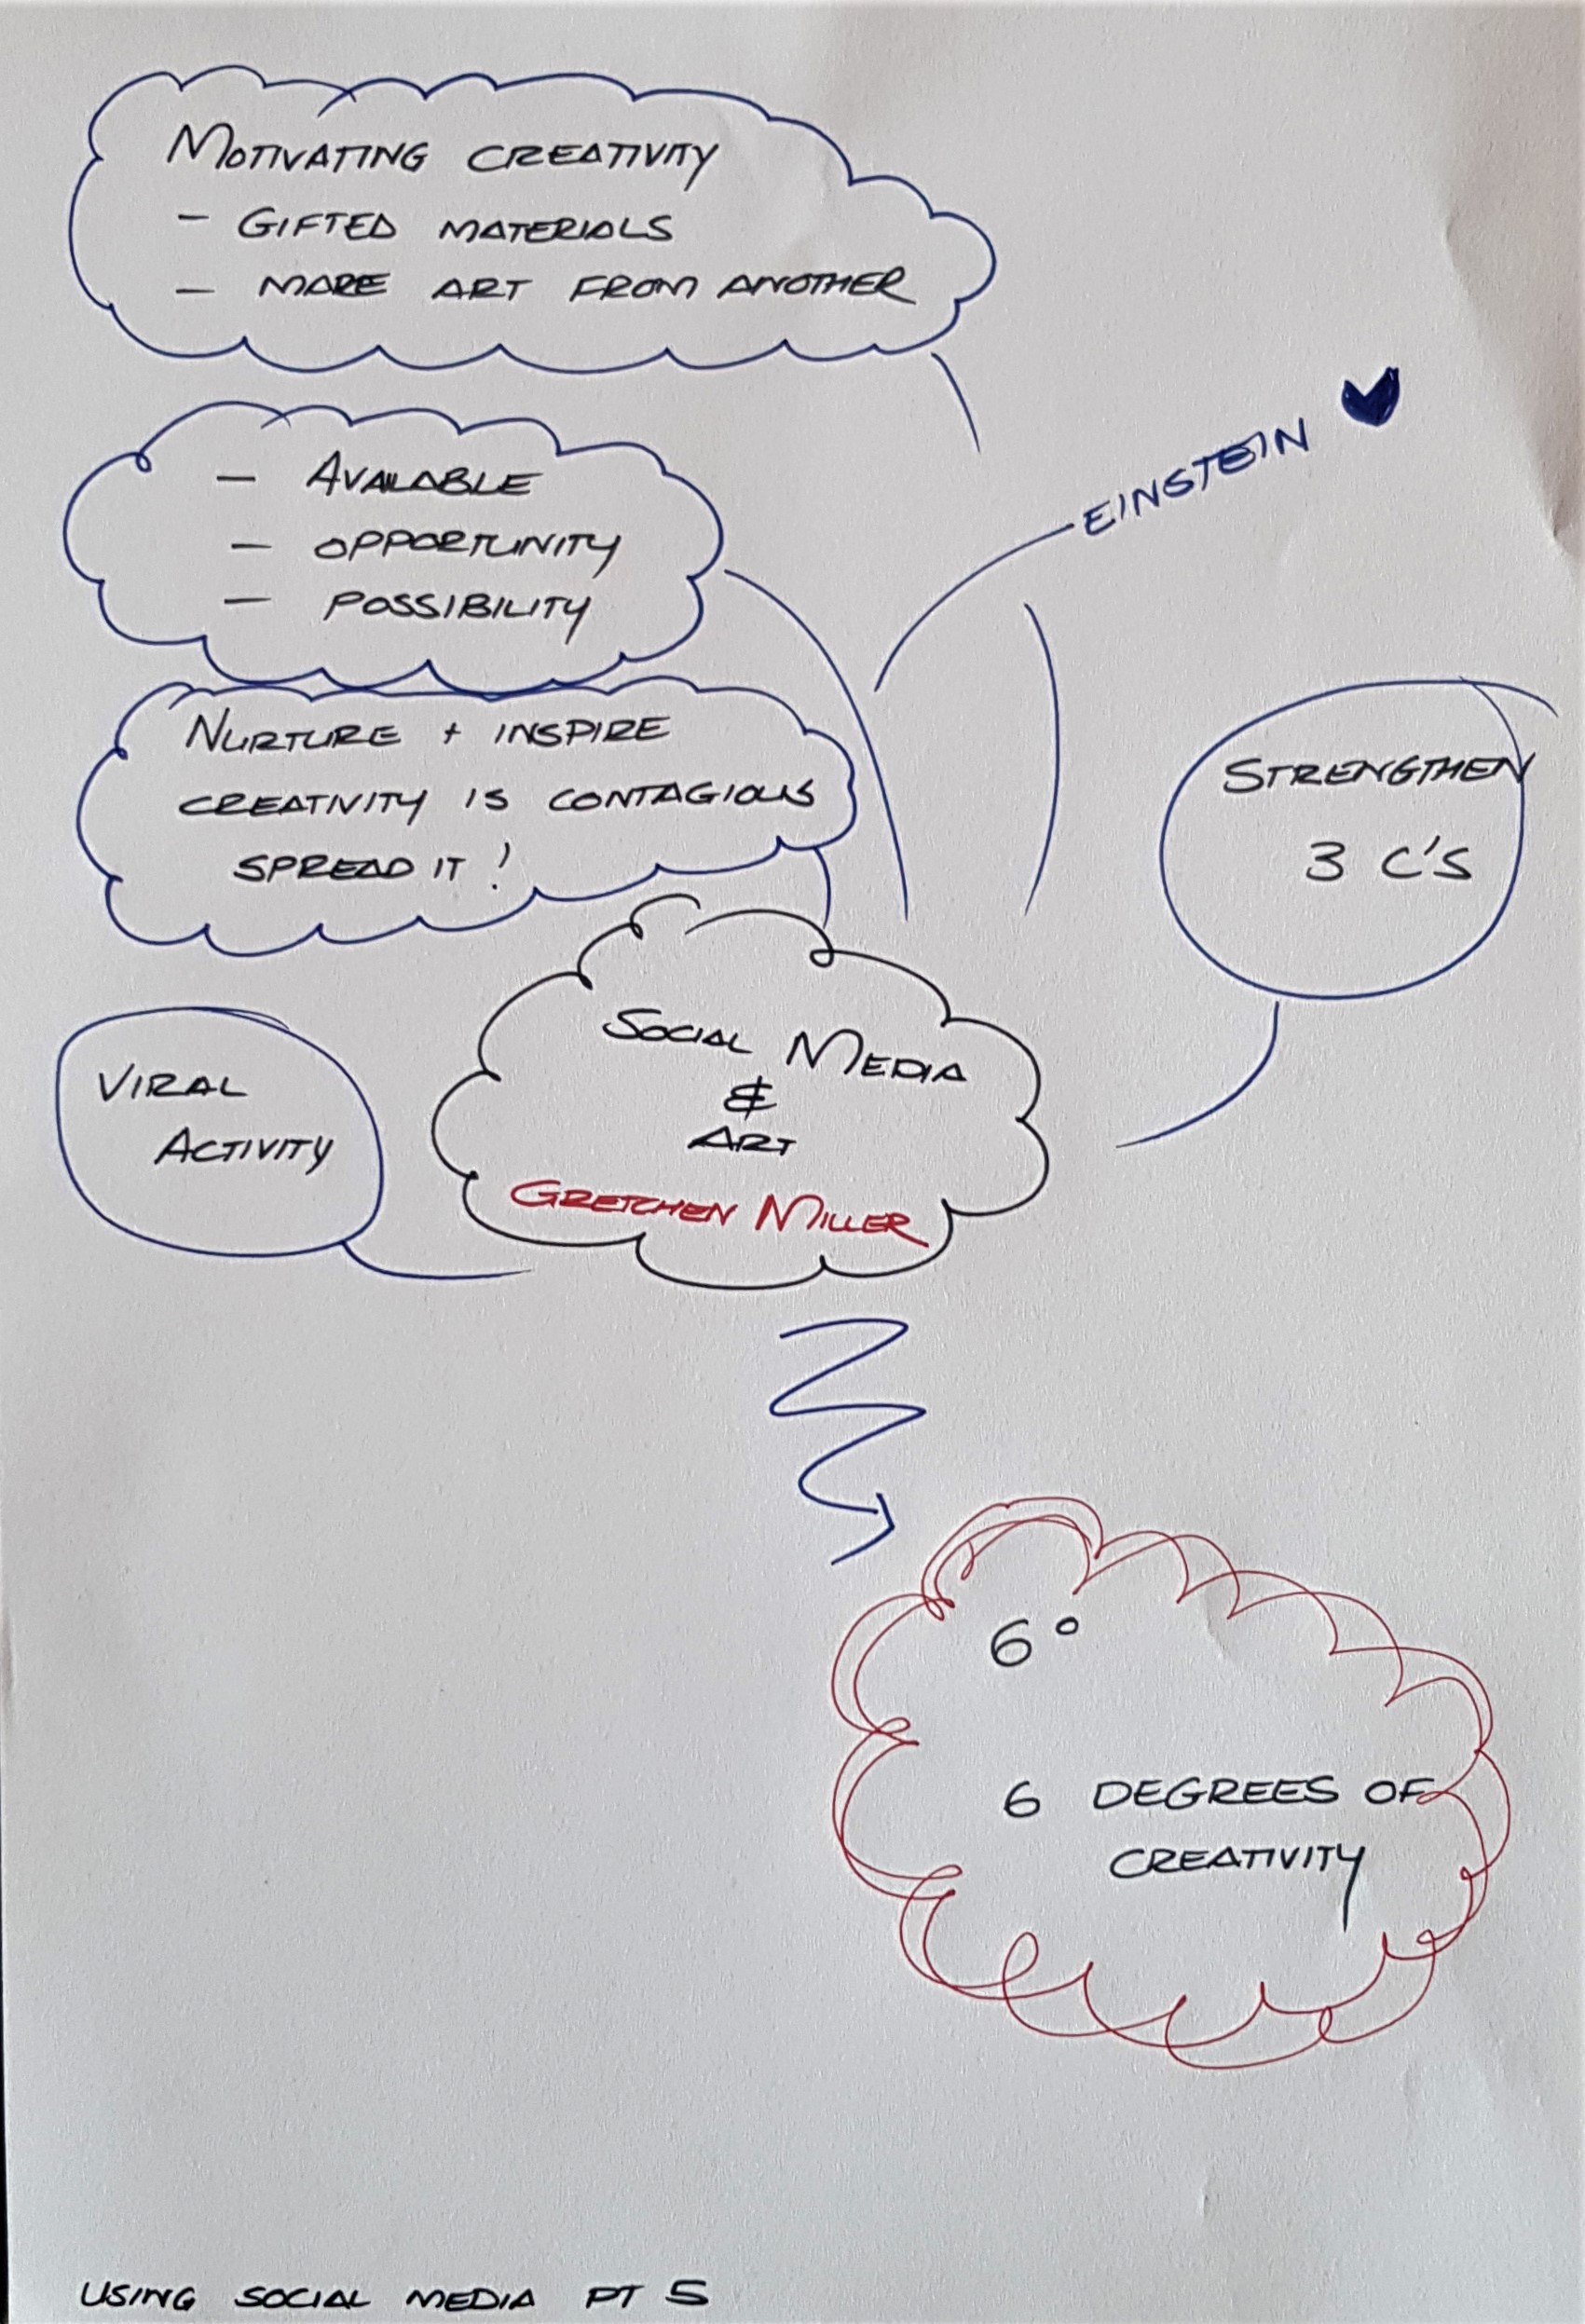 MOTIVATING CREATIVITY
- GIFTED MATERIALS
- MAKE ART FROM ANOTHER
EINSTEIN
- AVAILABLE
- OPPORTUNITY
- POSSIBILITY
NURTURE + INSPIRE
CREATIVITY IS CONTAGIOUS
SPREAD IT!
STRENGTHEN
3 C'S
VIRAL
ACTIVITY
SOCIAL MEDIA
&
ART
GRETCHEN MILLER
6°
6 DEGREES OF
CREATIVITY
USING SOCIAL MEDIA PT 5